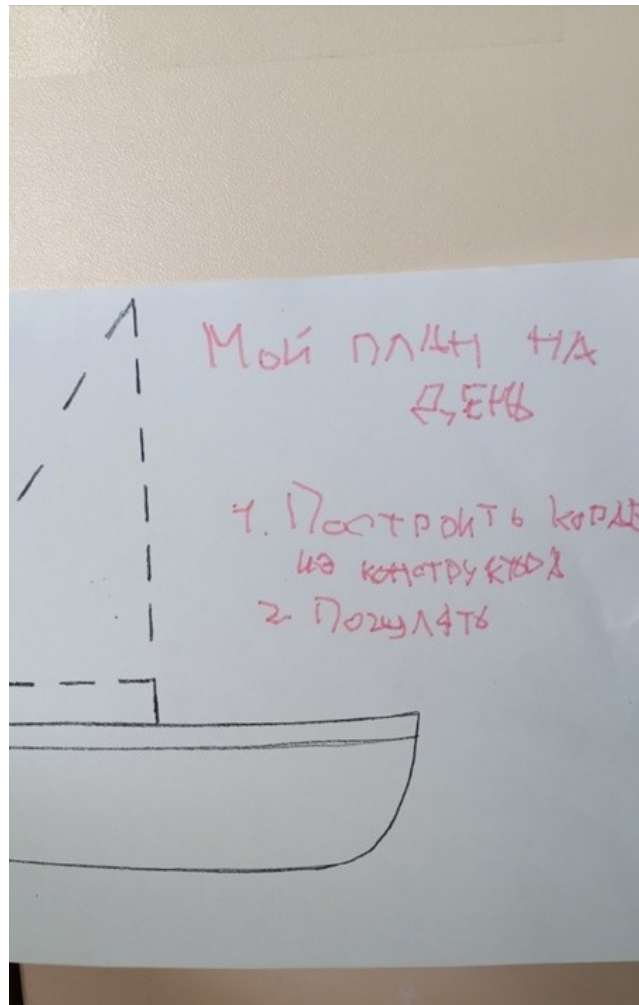 Мой план на
день
1. Построить кораб
из конструктора
2. Погулять